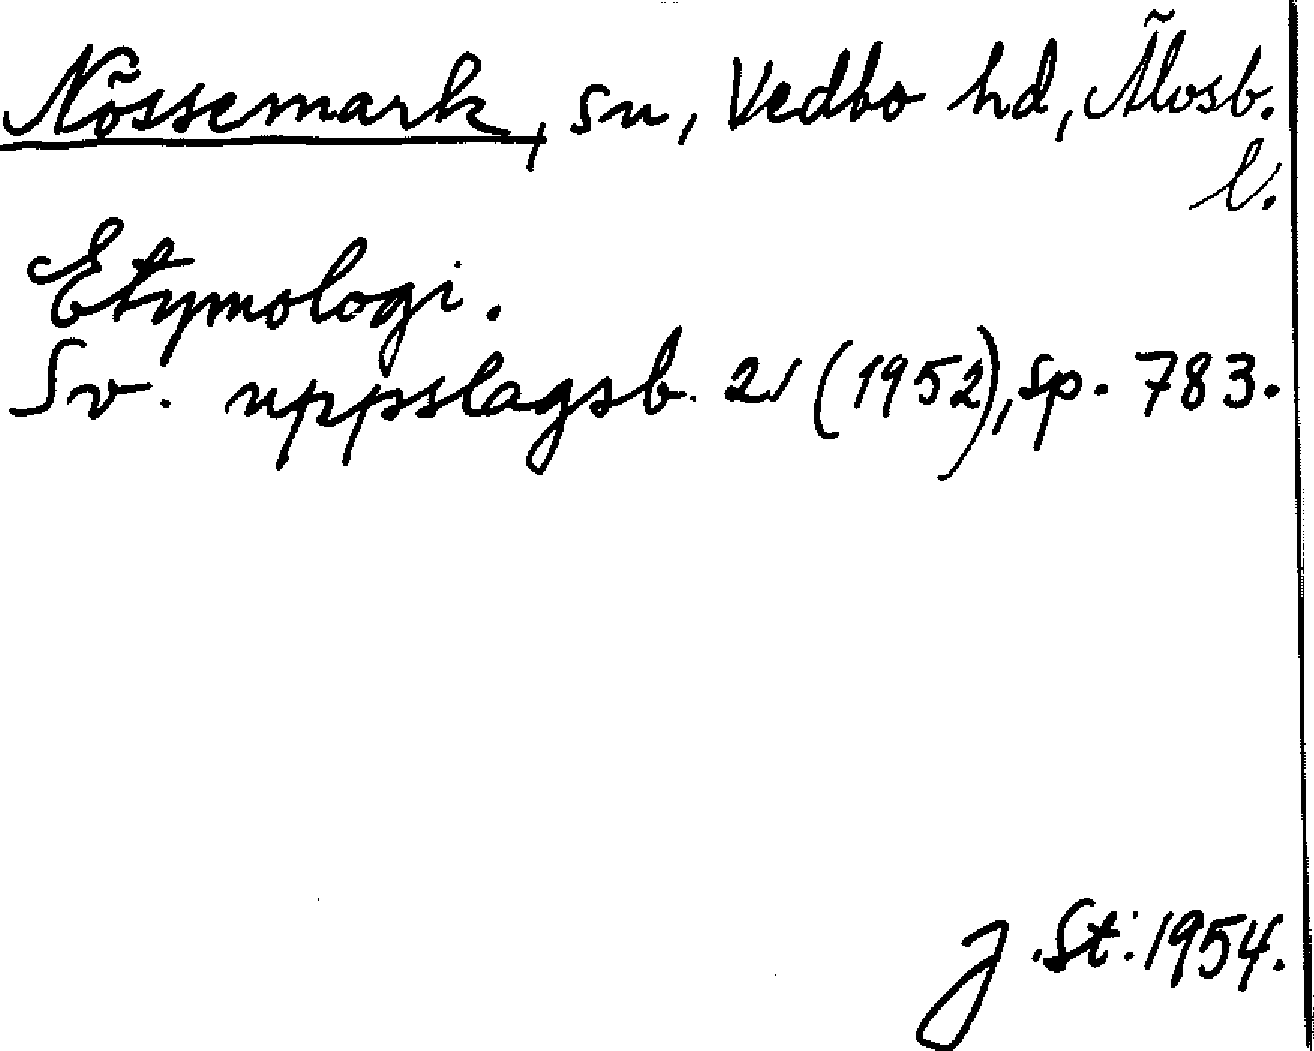 Nössemark, sn, Vedbo hd, Älvsb.
l.
Etymologi.
Sv. uppslagsb. 21 (1952), sp. 783.
J. St. 1954.